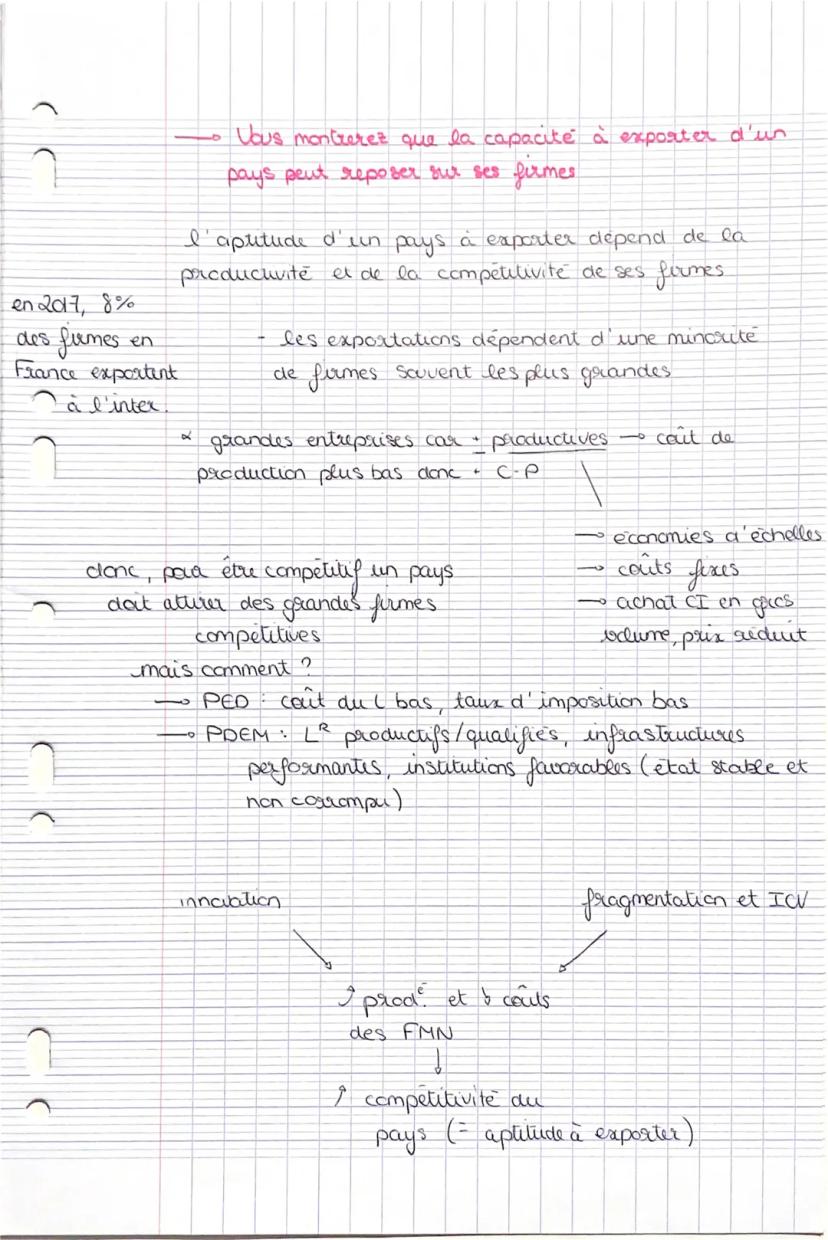 → Vous montrerez que la capacité à exporter d'un
pays peut reposer sur ses firmes
l'aptitude d'un pays à exporter dépend de la
productivité et de la compétitivité de ses firmes
en 2017, 8%
des firmes en
France exportent
à l'inter.
- les exportations dépendent d'une minorité
de firmes souvent les plus grandes
* grandes entreprises car + productives → coût de
production plus bas donc + C-P
→ économies d'échelles
→ coûts fixes
→ achat CI en gros
volume, prix réduit
donc, pour être compétitif un pays
doit attirer des grandes firmes
compétitives
mais comment ?
→ PED : coût du L bas, taux d'imposition bas
→ PDEM : LR productifs/qualifiés, infrastructures
performantes, institutions favorables (état stable et
non corrompu)
innovation
fragmentation et ICV
↗ prodé. et ↘ coûts
des FMN
↓
↗ compétitivité du
pays (= aptitude à exporter)